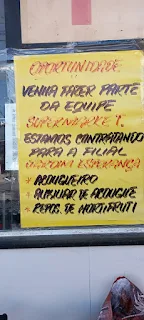 OPORTUNIDADE
VENHA FAZER PARTE
DA EQUIPE
SUPERMARKET
ESTAMOS CONTRATANDO
PARA A FILIAL
JARDIM ESPERANÇA
* AÇOUGUEIRO
* AUXILIAR DE AÇOUGUE
* REPOS. DE HORTIFRUTI